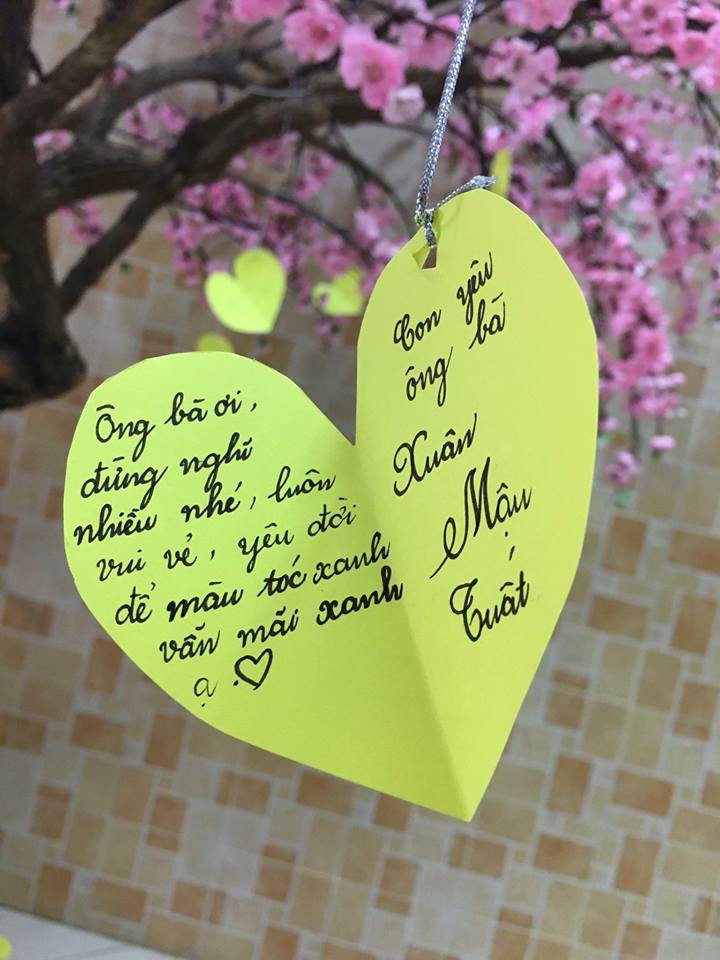 Ông bà ơi,
đừng nghĩ
nhiều nhé, luôn
vui vẻ, yêu đời
để màu tóc xanh
vẫn mãi xanh
ạ.♡
Con yêu
ông bà
Xuân
Mậu
Tuất